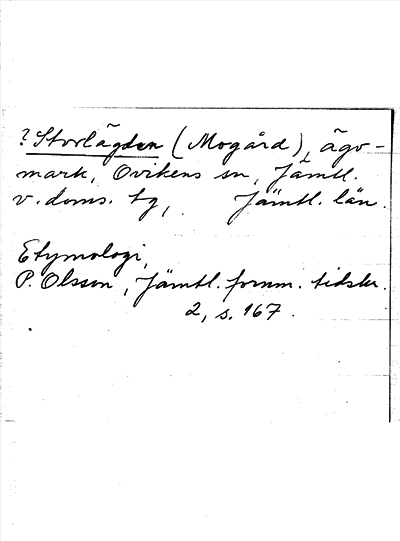 ? Storlägden (Mogård), ägo-
mark, Ovikens sn, Jämtl.
v. doms. tg, Jämtl. län.
Etymologi,
P. Olsson, Jämtl. fornm. tidskr.
2, s. 167.